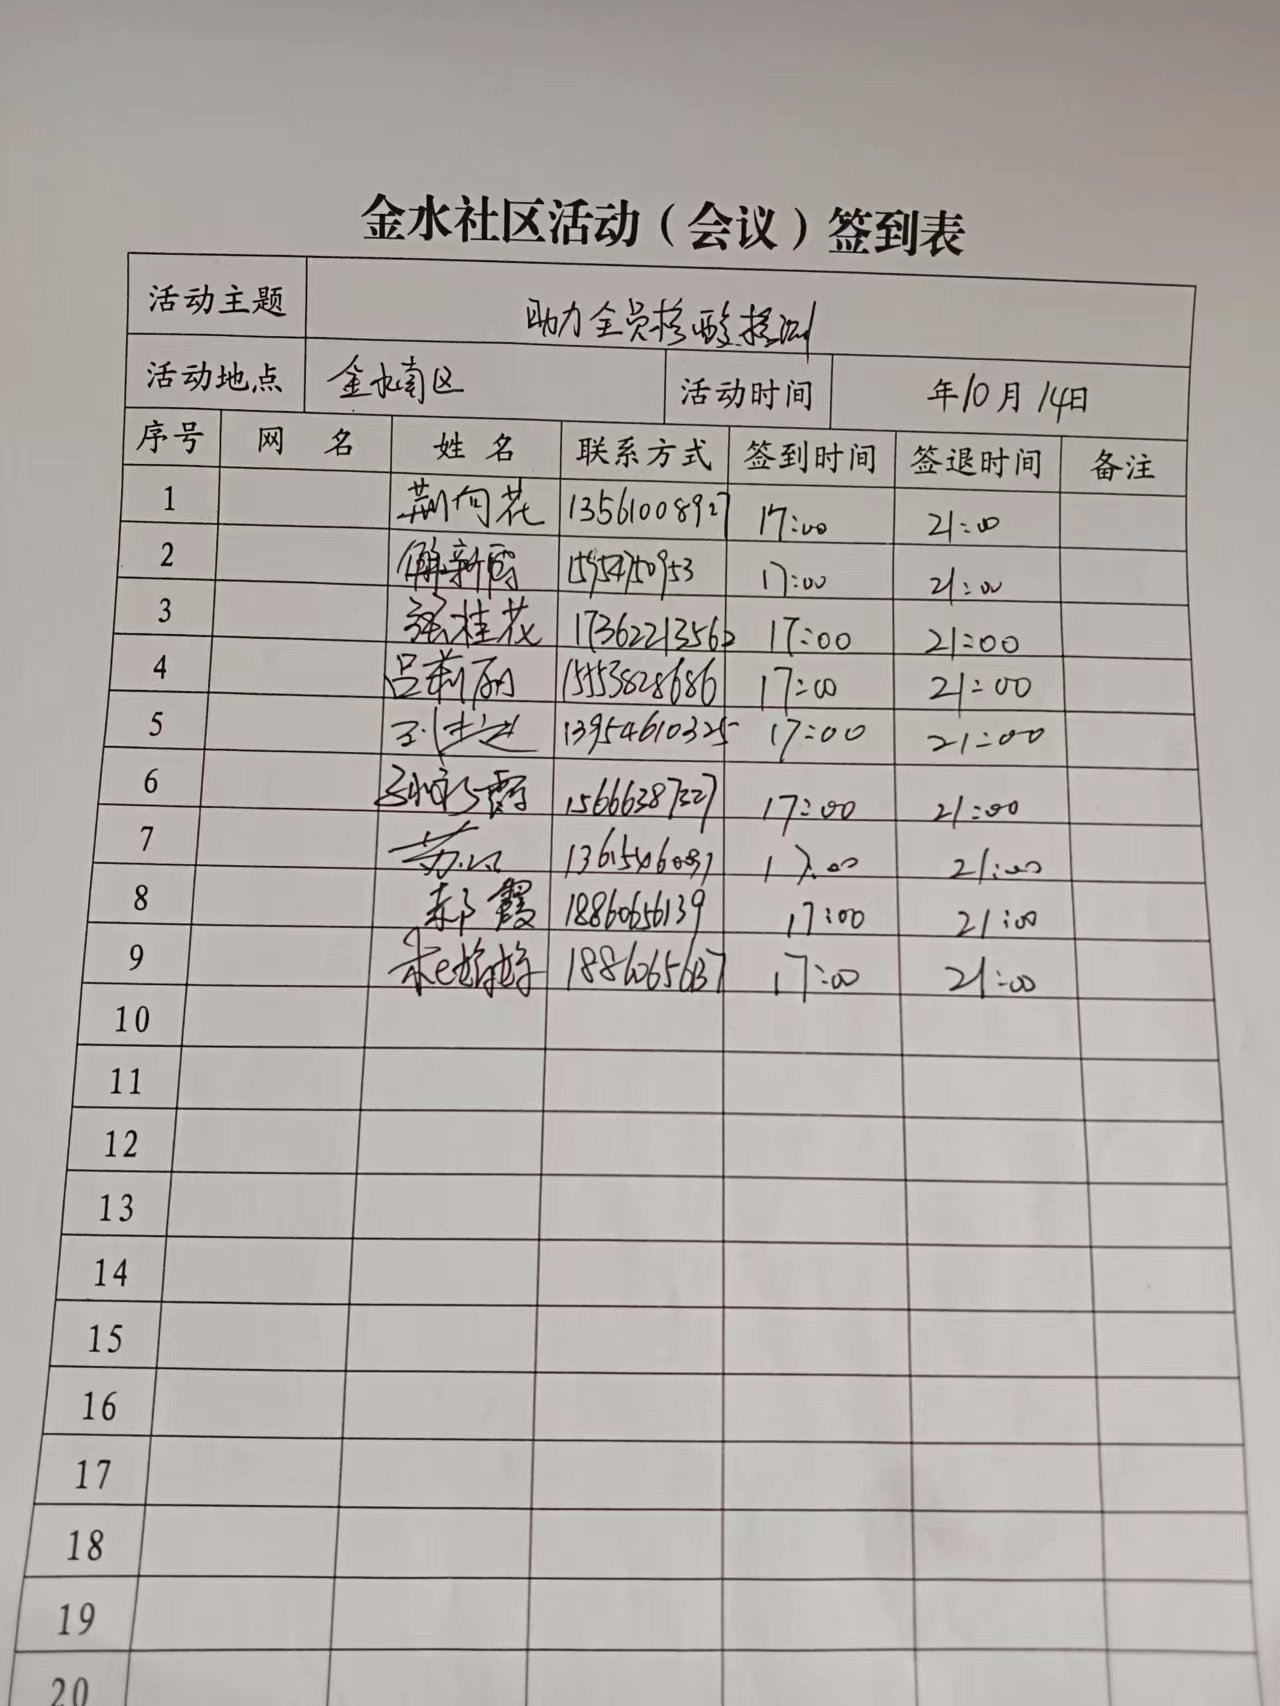 金水社区活动（会议）签到表
活动主题 助力全员核酸检测
活动地点 金水南区 活动时间 年10月14日
序号 网 名 姓 名 联系方式 签到时间 签退时间 备注
1 荆向花 13561008927 17:00 21:00
2 解新霞 15954750953 17:00 21:00
3 张桂花 17362213562 17:00 21:00
4 吕莉丽 15553828686 17:00 21:00
5 13954610325 17:00 21:00
6 15666387327 17:00 21:00
7 17:00 21:00
8 郝霞 18860656139 17:00 21:00
9 18860656137 17:00 21:00
10
11
12
13
14
15
16
17
18
19
20